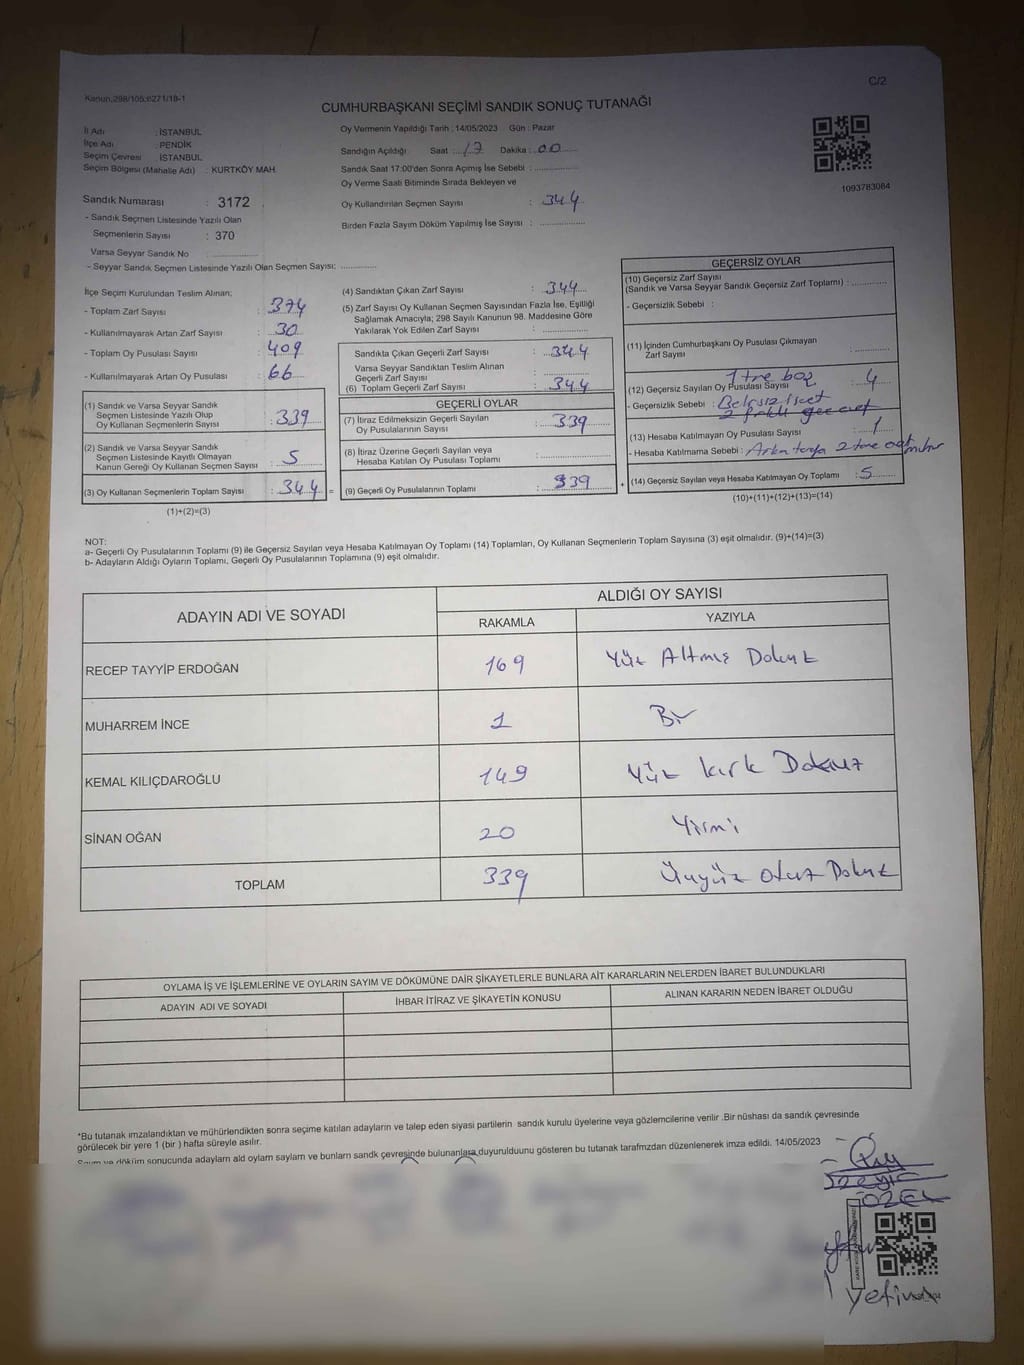 C/2
Kanun:298/105;6271/18-1
CUMHURBAŞKANI SEÇİMİ SANDIK SONUÇ TUTANAĞI
İl Adı : İSTANBUL
İlçe Adı : PENDİK
Seçim Çevresi : İSTANBUL
Seçim Bölgesi (Mahalle Adı) : KURTKÖY MAH.
Sandık Numarası : 3172
- Sandık Seçmen Listesinde Yazılı Olan
Seçmenlerin Sayısı : 370
Varsa Seyyar Sandık No : ..............
- Seyyar Sandık Seçmen Listesinde Yazılı Olan Seçmen Sayısı: ..............
Oy Vermenin Yapıldığı Tarih : 14/05/2023 Gün : Pazar
Sandığın Açıldığı Saat : 17 Dakika : 00
Sandık Saat 17:00'den Sonra Açımış İse Sebebi : ..............
Oy Verme Saati Bitiminde Sırada Bekleyen ve
Oy Kullandırılan Seçmen Sayısı : 344
Birden Fazla Sayım Döküm Yapılmış İse Sayısı : ..............
1093783084
İlçe Seçim Kurulundan Teslim Alınan;
- Toplam Zarf Sayısı : 374
- Kullanılmayarak Artan Zarf Sayısı : 30
- Toplam Oy Pusulası Sayısı : 409
- Kullanılmayarak Artan Oy Pusulası : 66
(1) Sandık ve Varsa Seyyar Sandık
Seçmen Listesinde Yazılı Olup
Oy Kullanan Seçmenlerin Sayısı : 339
(2) Sandık ve Varsa Seyyar Sandık
Seçmen Listesinde Kayıtlı Olmayan
Kanun Gereği Oy Kullanan Seçmen Sayısı : 5
(3) Oy Kullanan Seçmenlerin Toplam Sayısı : 344 =
(1)+(2)=(3)
(4) Sandıktan Çıkan Zarf Sayısı : 344
(5) Zarf Sayısı Oy Kullanan Seçmen Sayısından Fazla İse, Eşitliği
Sağlamak Amacıyla; 298 Sayılı Kanunun 98. Maddesine Göre
Yakılarak Yok Edilen Zarf Sayısı : ..............
Sandıkta Çıkan Geçerli Zarf Sayısı : 344
Varsa Seyyar Sandıktan Teslim Alınan
Geçerli Zarf Sayısı : ..............
(6) Toplam Geçerli Zarf Sayısı : 344
GEÇERLİ OYLAR
(7) İtiraz Edilmeksizin Geçerli Sayılan
Oy Pusulalarının Sayısı : 339
(8) İtiraz Üzerine Geçerli Sayılan veya
Hesaba Katılan Oy Pusulası Toplamı : ..............
(9) Geçerli Oy Pusulalarının Toplamı : 339 +
GEÇERSİZ OYLAR
(10) Geçersiz Zarf Sayısı
(Sandık ve Varsa Seyyar Sandık Geçersiz Zarf Toplamı) : ..............
- Geçersizlik Sebebi :
(11) İçinden Cumhurbaşkanı Oy Pusulası Çıkmayan
Zarf Sayısı : ..............
1 tne boş
(12) Geçersiz Sayılan Oy Pusulası Sayısı : 4
- Geçersizlik Sebebi :
(13) Hesaba Katılmayan Oy Pusulası Sayısı : 1
- Hesaba Katılmama Sebebi : Arka tarafa 2 tne
(14) Geçersiz Sayılan veya Hesaba Katılmayan Oy Toplamı : 5
(10)+(11)+(12)+(13)=(14)
NOT:
a- Geçerli Oy Pusulalarının Toplamı (9) ile Geçersiz Sayılan veya Hesaba Katılmayan Oy Toplamı (14) Toplamları, Oy Kullanan Seçmenlerin Toplam Sayısına (3) eşit olmalıdır. (9)+(14)=(3)
b- Adayların Aldığı Oyların Toplamı, Geçerli Oy Pusulalarının Toplamına (9) eşit olmalıdır.
ADAYIN ADI VE SOYADI ALDIĞI OY SAYISI
RAKAMLA YAZIYLA
RECEP TAYYİP ERDOĞAN 169 Yüz Altmış Dokuz
MUHARREM İNCE 1 Bir
KEMAL KILIÇDAROĞLU 149 Yüz Kırk Dokuz
SİNAN OĞAN 20 Yirmi
TOPLAM 339 Üçyüz Otuz Dokuz
OYLAMA İŞ VE İŞLEMLERİNE VE OYLARIN SAYIM VE DÖKÜMÜNE DAİR ŞİKAYETLERLE BUNLARA AİT KARARLARIN NELERDEN İBARET BULUNDUKLARI
ADAYIN ADI VE SOYADI İHBAR İTİRAZ VE ŞİKAYETİN KONUSU ALINAN KARARIN NEDEN İBARET OLDUĞU
*Bu tutanak imzalandıktan ve mühürlendikten sonra seçime katılan adayların ve talep eden siyasi partilerin sandık kurulu üyelerine veya gözlemcilerine verilir .Bir nüshası da sandık çevresinde
görülecek bir yere 1 (bir ) hafta süreyle asılır.
Sayım ve döküm sonucunda adayların ald oyların sayların ve bunların sandk çevresinde bulunanlara duyurulduunu gösteren bu tutanak tarafmzdan düzenlenerek imza edildi. 14/05/2023
ÖZEL